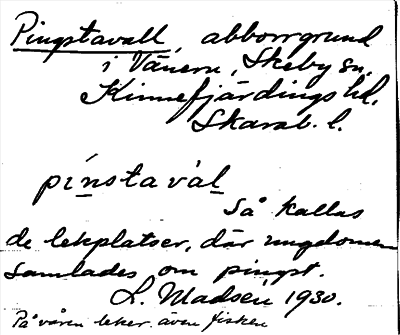 Pingstavall, abborrgrund
i Vänern, Skeby sn,
Kinnefjärdings hd.
Skarab. l.
pínstavàl
Så kallas
de lekplatser, där ungdomen
samlades om pingst.
L. Madsén 1930.
På våren leker även fisken